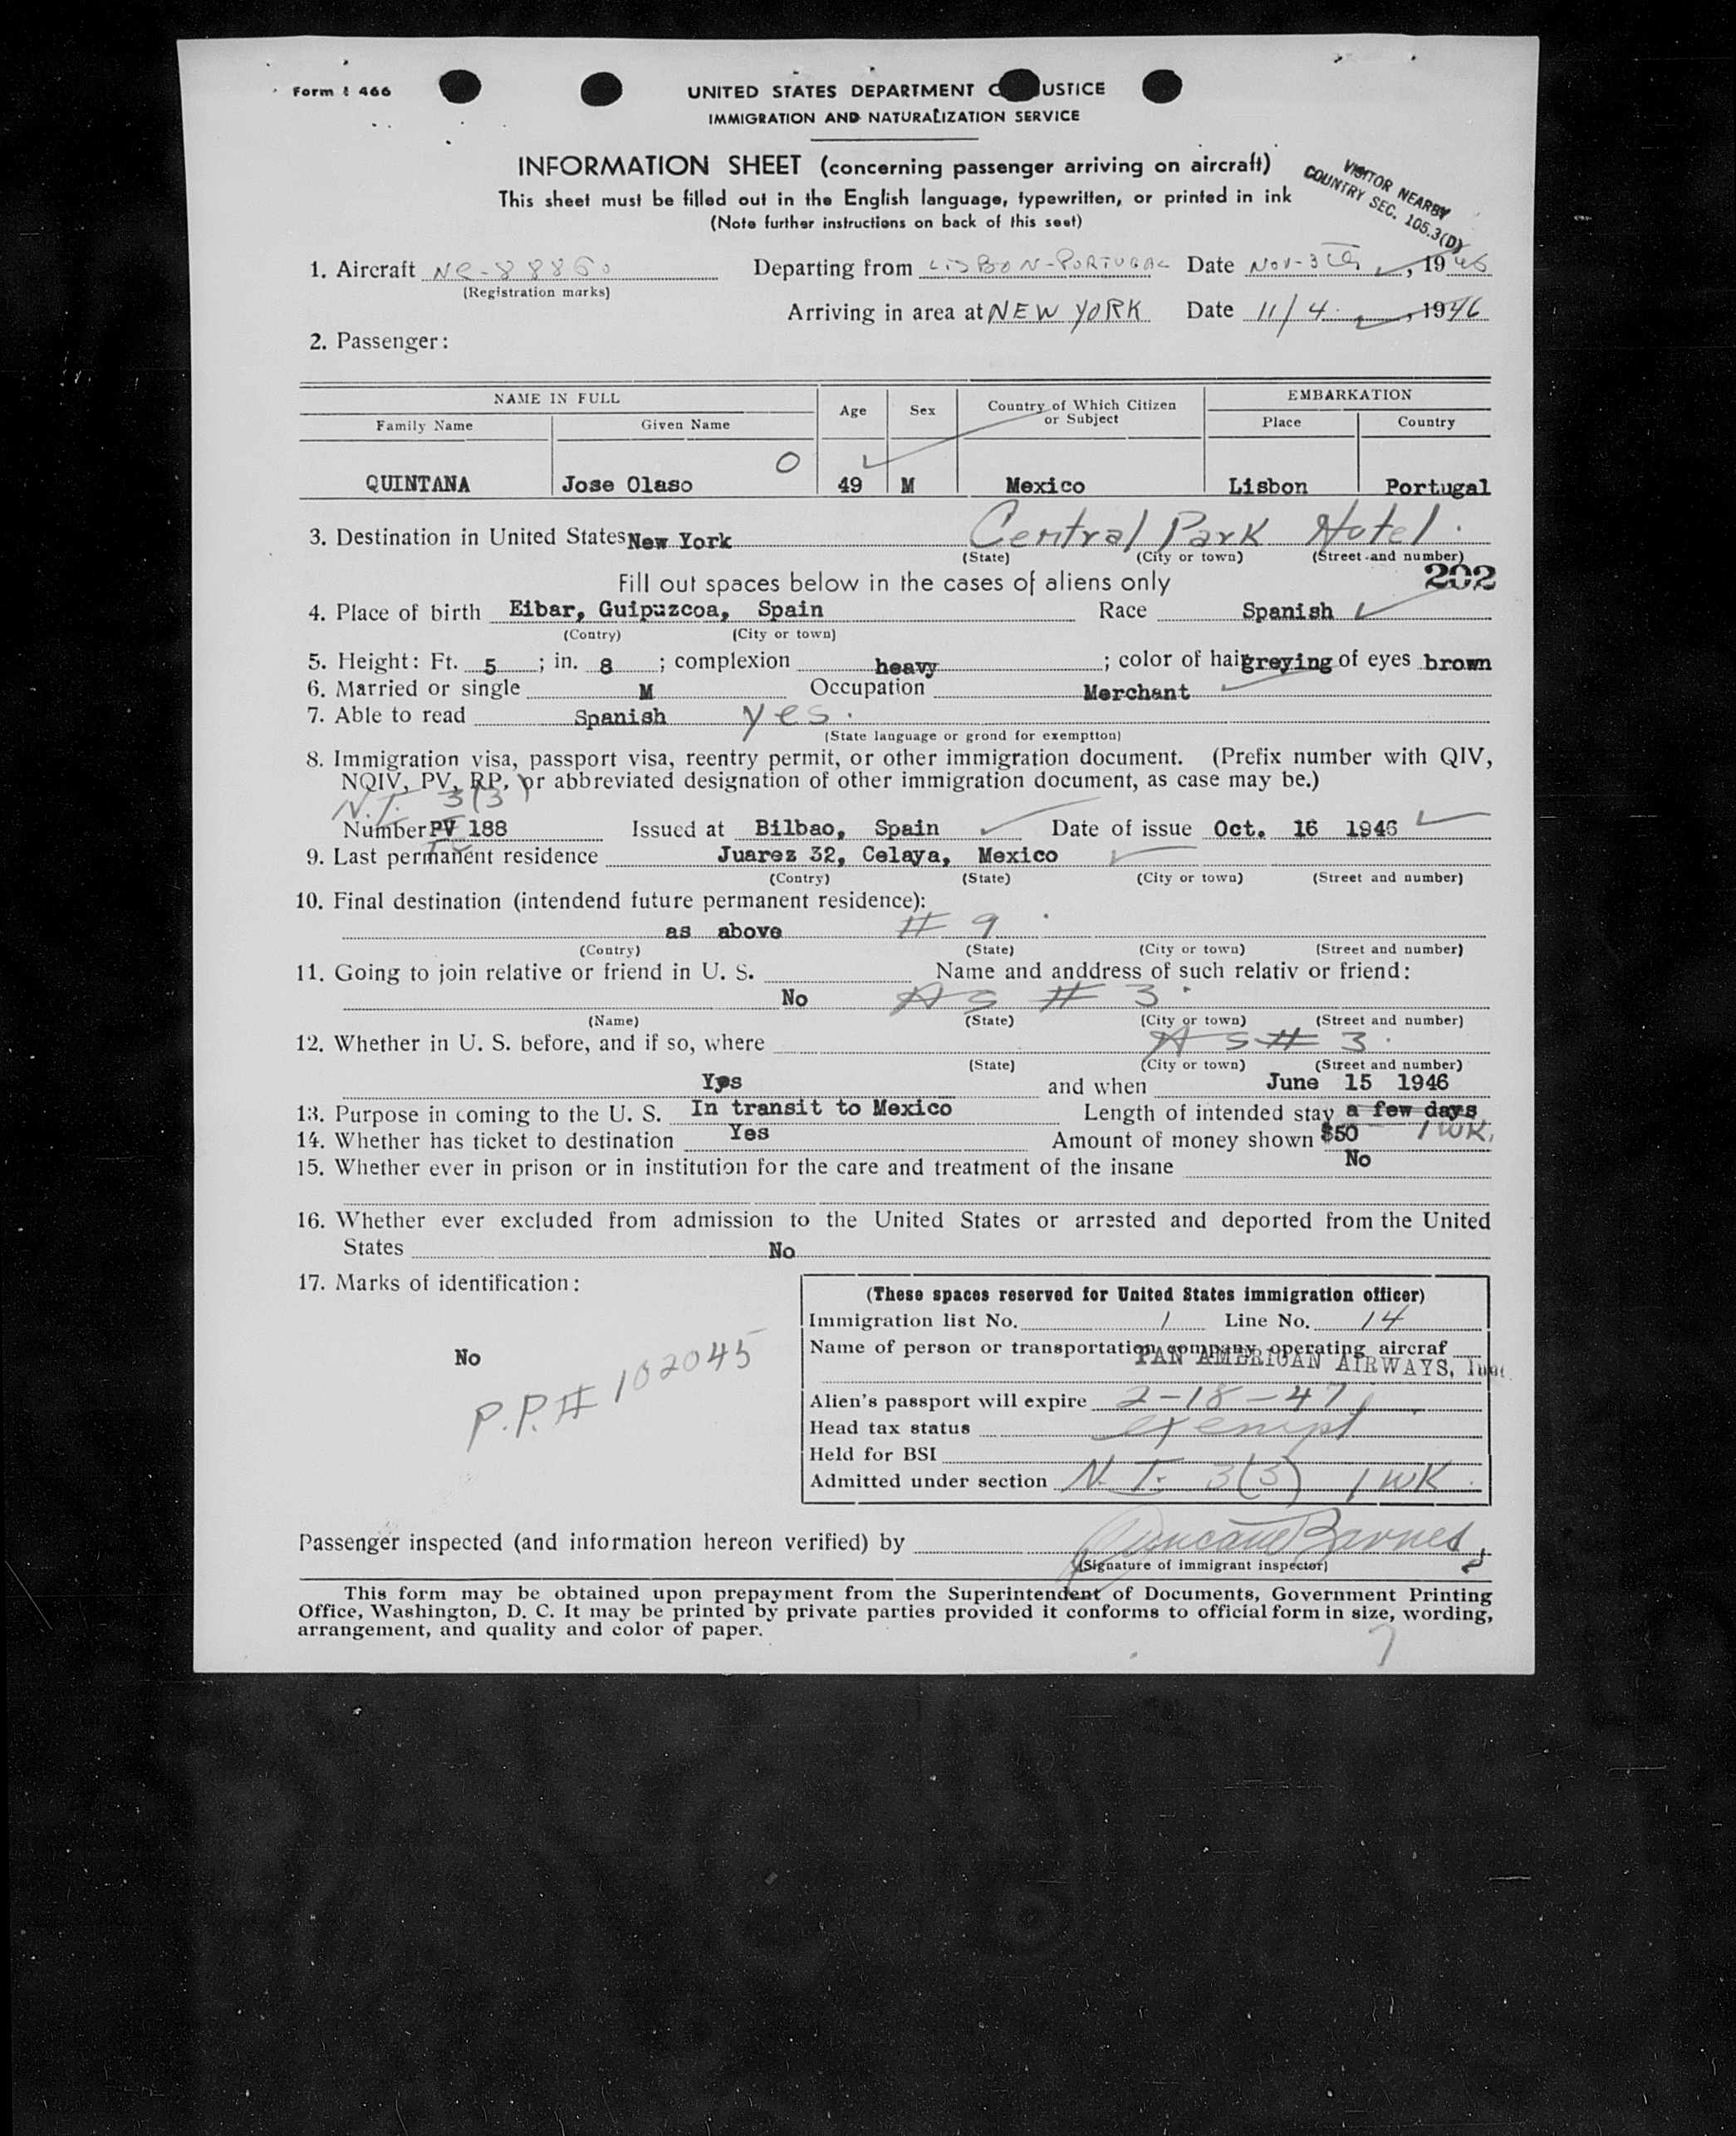 Form I 466
UNITED STATES DEPARTMENT O USTICE
IMMIGRATION AND NATURALIZATION SERVICE
INFORMATION SHEET (concerning passenger arriving on aircraft)
This sheet must be filled out in the English language, typewritten, or printed in ink
(Note further instructions on back of this seet)
VISITOR NEARBY
COUNTRY SEC. 105.3(D)
1. Aircraft NC-88860 Departing from LISBON-PORTUGAL Date Nov-3 , 1946
(Registration marks)
Arriving in area at NEW YORK Date 11/4 , 1946
2. Passenger:
NAME IN FULL Age Sex Country of Which Citizen or Subject EMBARKATION
Family Name Given Name Place Country
O
QUINTANA Jose Olaso 49 M Mexico Lisbon Portugal
3. Destination in United States New York Central Park Hotel
(State) (City or town) (Street and number)
Fill out spaces below in the cases of aliens only 202
4. Place of birth Eibar, Guipuzcoa, Spain Race Spanish
(Contry) (City or town)
5. Height: Ft. 5 ; in. 8 ; complexion heavy ; color of hair greying of eyes brown
6. Married or single M Occupation Merchant
7. Able to read Spanish yes.
(State language or grond for exemption)
8. Immigration visa, passport visa, reentry permit, or other immigration document. (Prefix number with QIV,
NQIV, PV, RP, or abbreviated designation of other immigration document, as case may be.)
N.I. 3(3)
Number PV 188 Issued at Bilbao, Spain Date of issue Oct. 16 1946
9. Last permanent residence Juarez 32, Celaya, Mexico
(Contry) (State) (City or town) (Street and number)
10. Final destination (intendend future permanent residence):
as above # 9
(Contry) (State) (City or town) (Street and number)
11. Going to join relative or friend in U. S. Name and anddress of such relativ or friend:
No As # 3
(Name) (State) (City or town) (Street and number)
12. Whether in U. S. before, and if so, where As # 3
(State) (City or town) (Street and number)
Yes and when June 15 1946
13. Purpose in coming to the U. S. In transit to Mexico Length of intended stay a few days
14. Whether has ticket to destination Yes Amount of money shown $50 1 WK.
15. Whether ever in prison or in institution for the care and treatment of the insane No
16. Whether ever excluded from admission to the United States or arrested and deported from the United
States No
17. Marks of identification:
No
P.P.# 102045
(These spaces reserved for United States immigration officer)
Immigration list No. 1 Line No. 14
Name of person or transportation company operating aircraf
PAN AMERICAN AIRWAYS, Inc.
Alien's passport will expire 2-18-47
Head tax status exempt
Held for BSI
Admitted under section N.I. 3(3) 1 WK.
Passenger inspected (and information hereon verified) by Barnes
(Signature of immigrant inspector)
This form may be obtained upon prepayment from the Superintendent of Documents, Government Printing
Office, Washington, D. C. It may be printed by private parties provided it conforms to official form in size, wording,
arrangement, and quality and color of paper.